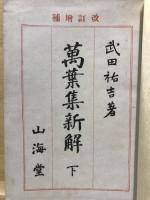 補增訂改
武田祐吉著
萬葉集新解 下
山海堂